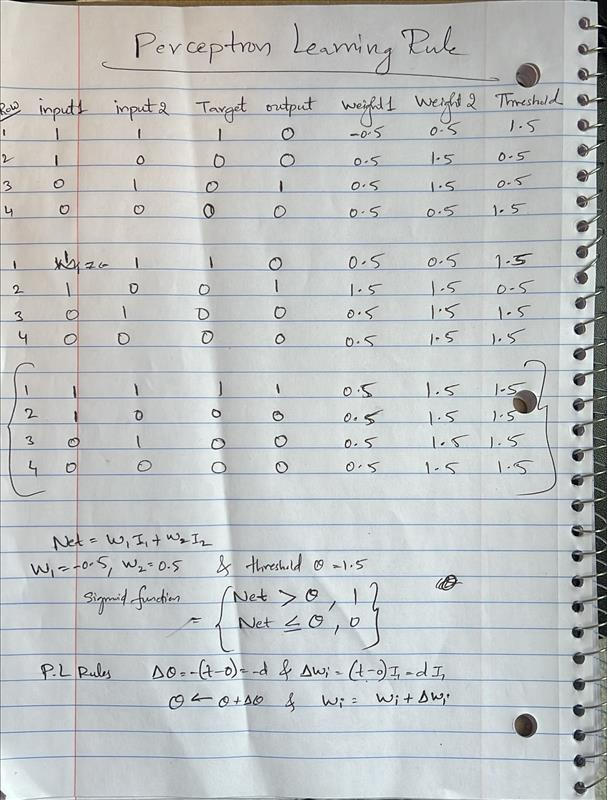 Perceptron Learning Rule
Row input1 input2 Target output Weight1 Weight 2 Threshold
1 1 1 1 0 -0.5 0.5 1.5
2 1 0 0 0 0.5 1.5 0.5
3 0 1 0 1 0.5 1.5 0.5
4 0 0 0 0 0.5 0.5 1.5
1 1 1 0 0.5 0.5 1.5
2 1 0 0 1 1.5 1.5 0.5
3 0 1 0 0 0.5 1.5 1.5
4 0 0 0 0 0.5 1.5 1.5
1 1 1 1 1 0.5 1.5 1.5
2 1 0 0 0 0.5 1.5 1.5
3 0 1 0 0 0.5 1.5 1.5
4 0 0 0 0 0.5 1.5 1.5
Net = W₁ I₁ + W₂ I₂
W₁ = -0.5, W₂ = 0.5 & threshold θ = 1.5
Sigmid function = { Net > θ, 1 }
{ Net ≤ θ, 0 }
P.L Rules Δθ = -(t-0) = -d & ΔWi = (t-0) I₁ = d I₁
θ ← θ + Δθ & Wi = Wi + ΔWi